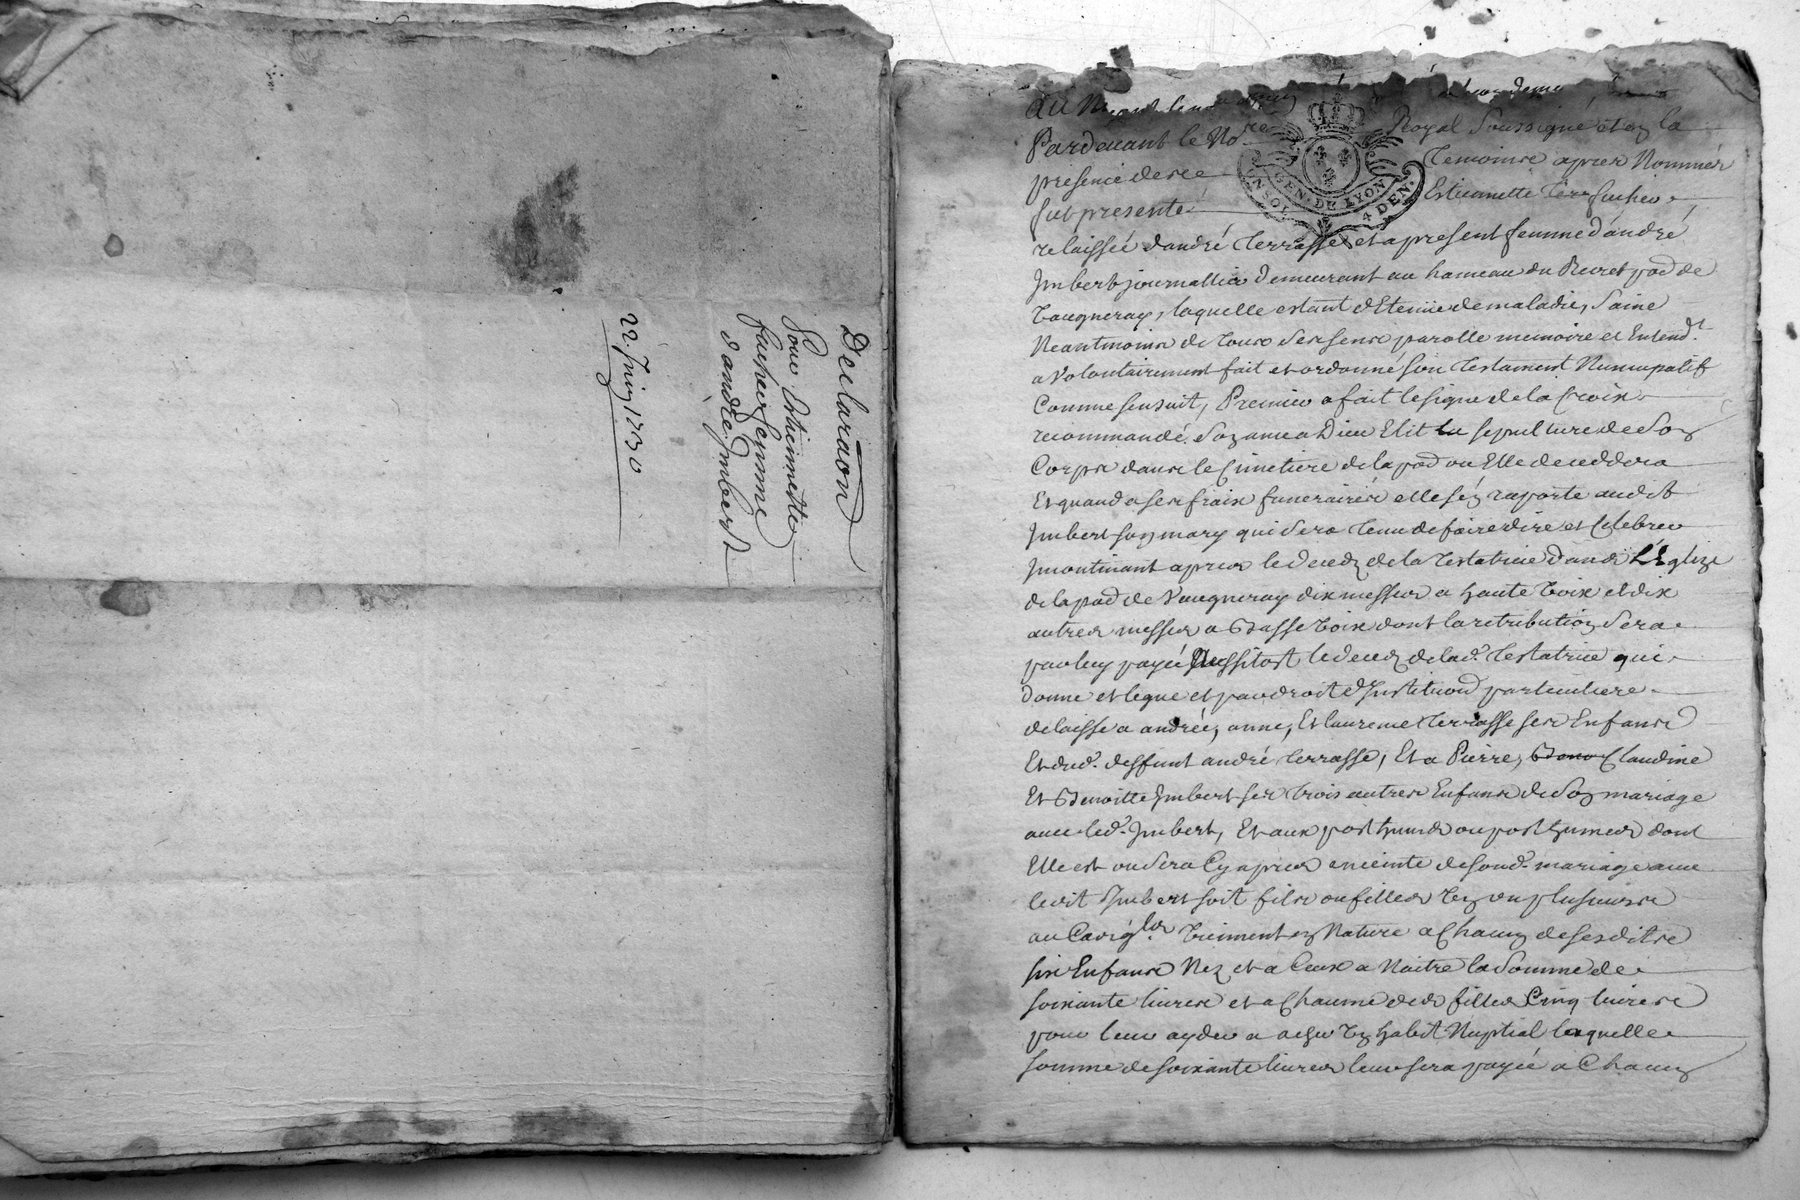 Declaraõn
Pour Estiennette
fucher femme
d'andré Jmbert
22. Juin 1730
Pardevant le No.re Royal Soussigné et en la
presence de ses Temoins apres Nommés
fut presente Estiennette
GEN. DE LYON
UN SOL 4 DEN.
relaissée d'andré terrasse et a present femme d'andré
Jmbert journallier demeurant au hameau du
Vaugneray, laquelle estant detenüe de maladie, saine
Neantmoins de tous ses sens parolle memoire et Entend.t
a volontairement fait et ordonné son testament Nuncupatif
Comme sensuit, Premier a fait le signe de la Croix
recommandé son ame a Dieu Elit la sepulture de son
Corps dans le Cimetiere de la pad ou Elle deceddera
Et quand a ses fraix funeraires elle s'en raporte audit
Jmbert son mary qui sera tenu de faire dire et Celebrer
Jncontinant apres le deced de la testatrice dans L'Eglize
de la pad de Vaugneray dix messes a haute voix et dix
autres messes a Basse voix dont la retribution sera
par luy payée Aussitost le deced de lad.e testatrice qui
donne et legue et par droit d'Jnstitution particuliere
delaisse a andrée, anne, Et laurence terrasse ses Enfans
Et dud. deffunt andré terrasse, Et a Pierre, Beno Claudine
Et Benoitte Jmbert ses trois autres Enfans de son mariage
avec led. Jmbert, Et aux posthumes ou posthumes dont
Elle est ou sera Cy apres enceinte de sond. mariage avec
ledit Jmbert soit fils ou filles un ou plusieurs
au Cas viennent en Nature a Chacun de sesdits
six Enfans Nez et a Ceux a Naitre la somme de
soixante livres et a Chacune des filles Cinq livres
pour leur ayder a un habit Nuptial laquelle
somme de soixante livres leur sera payée a Chacun